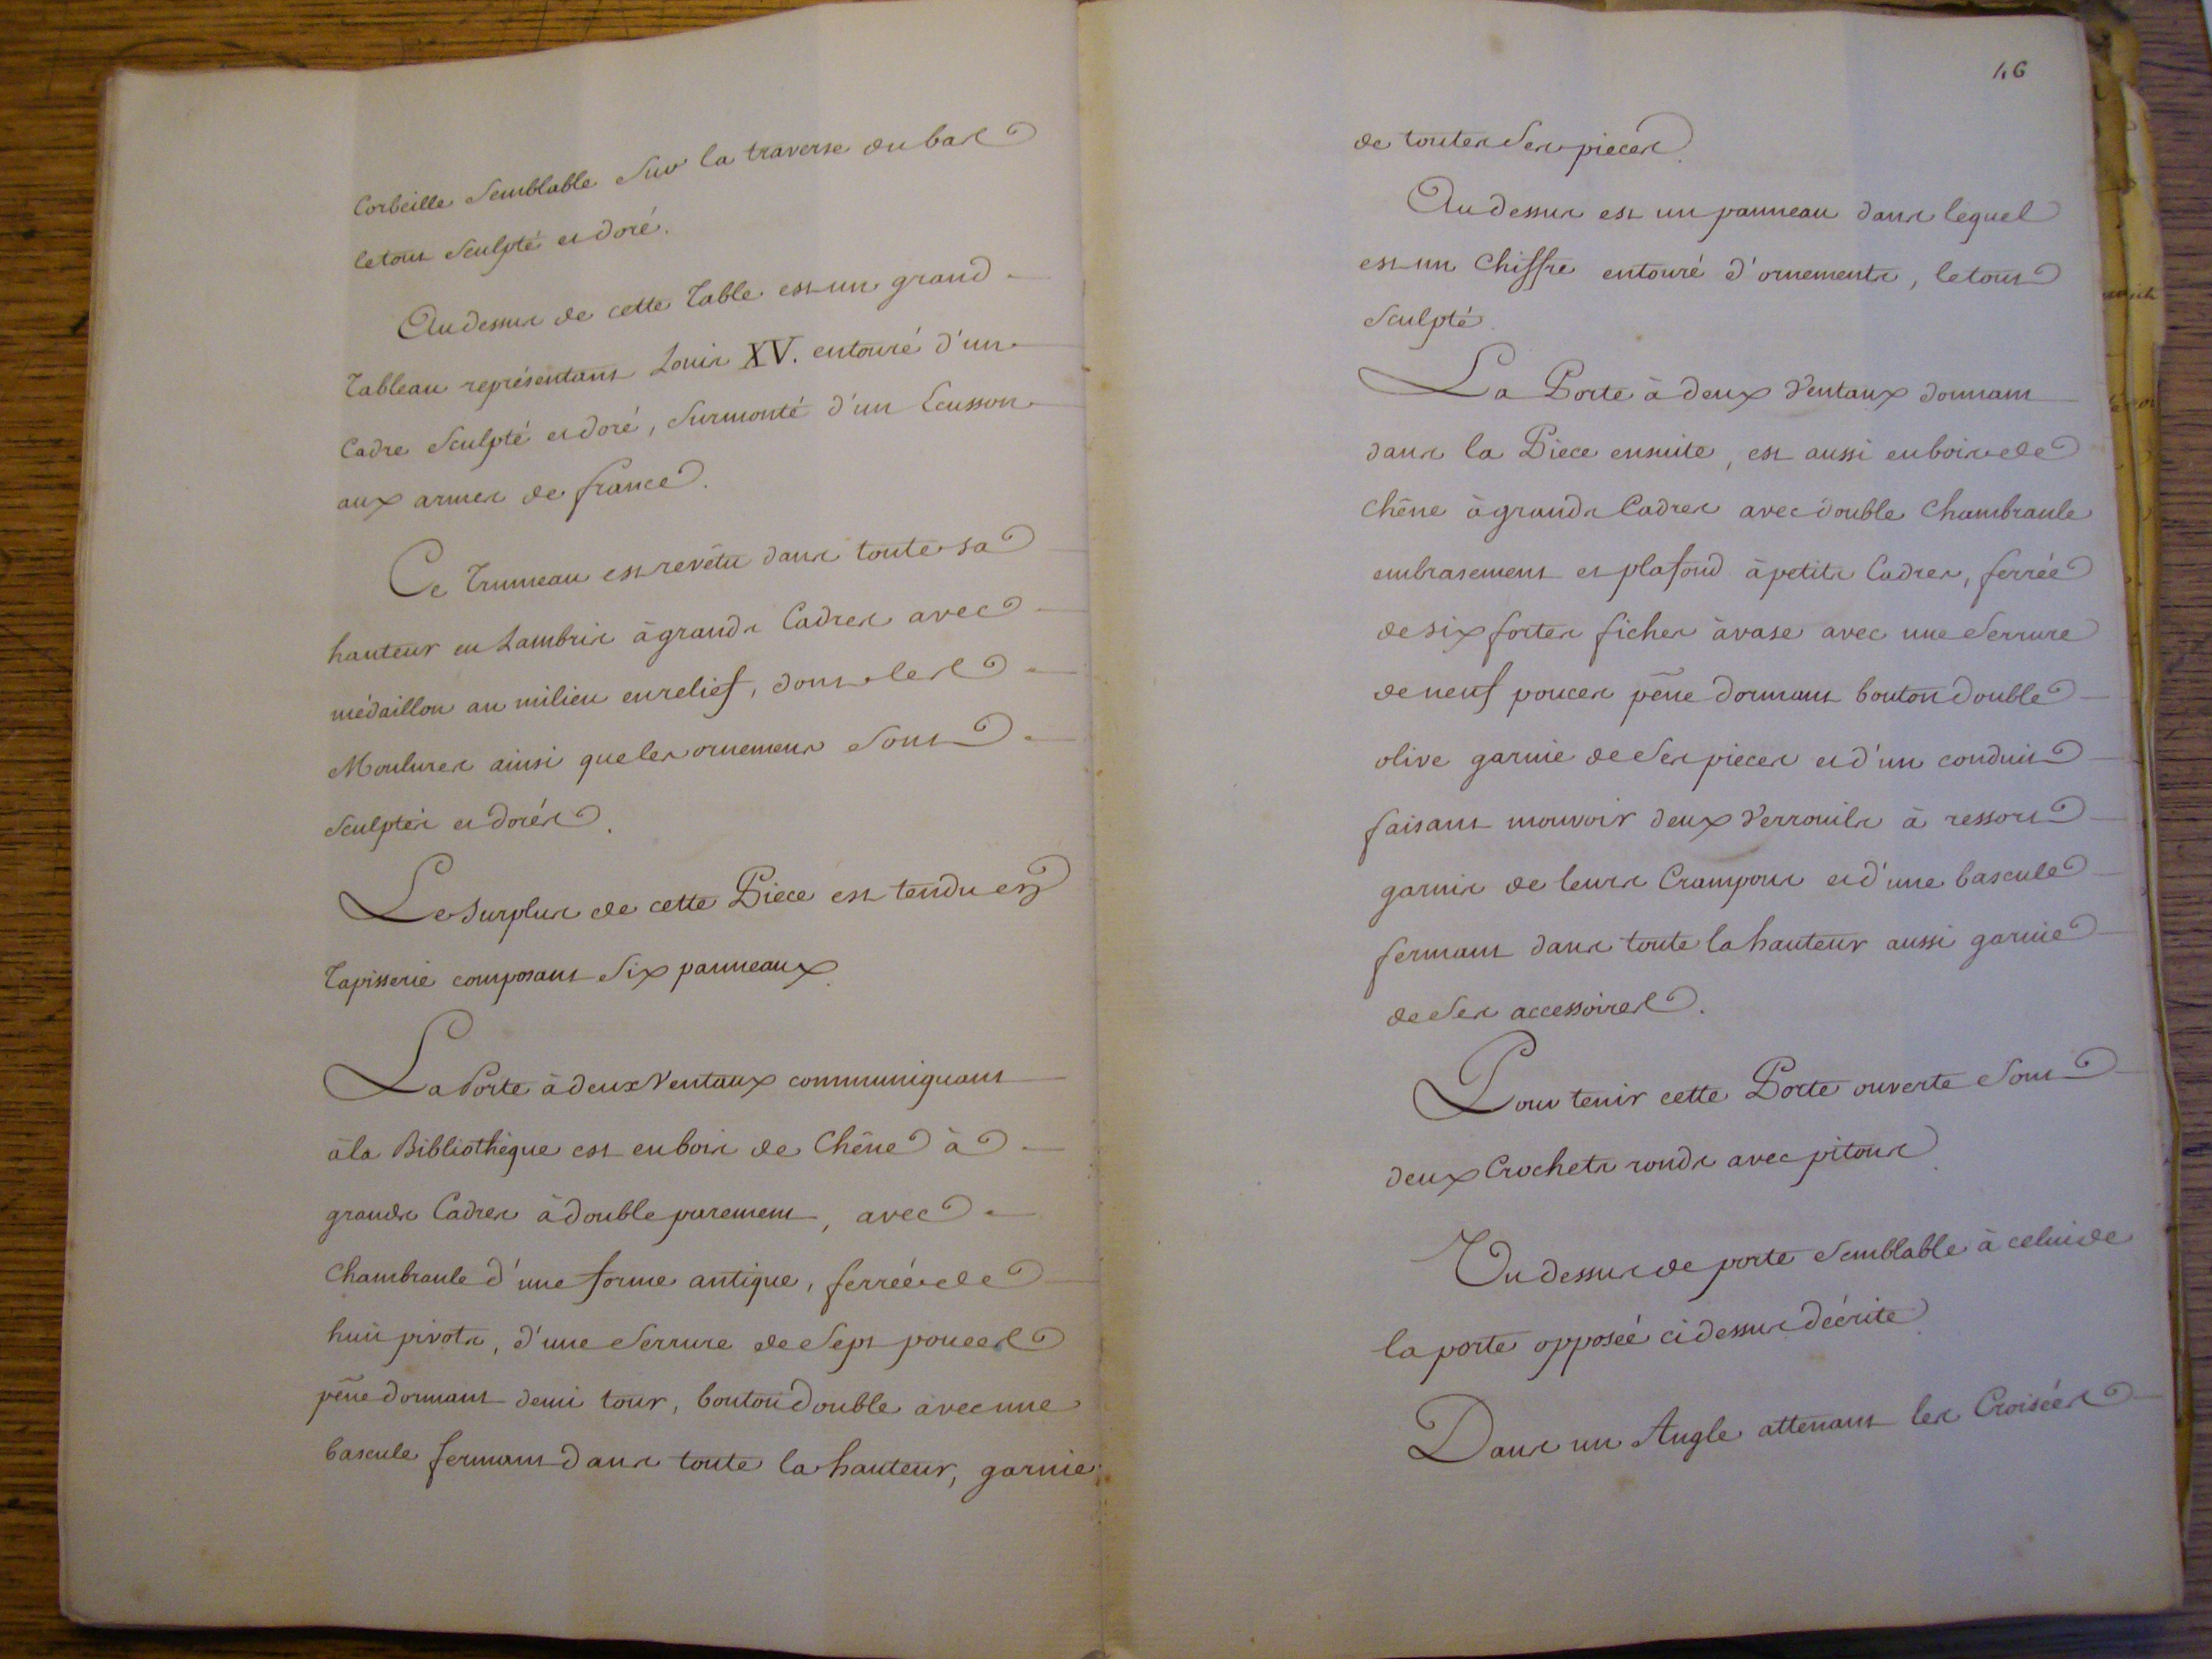 Corbeille Semblable Sur la traverse du bas
le tout Sculpté et doré.
Au dessus de cette Table est un grand
Tableau représentant Louis XV. entouré d'un
Cadre Sculpté et doré, Surmonté d'un Ecusson
aux armes de france.
Ce Trumeau est revêtu dans toute sa
hauteur en Lambris à grands Cadres avec
médaillon au milieu en relief, dont les
Moulures ainsi que les ornemens Sont
Sculptés et dorés.
Le Surplus de cette Piece est tendu en
Tapisserie composant Six panneaux.
La Porte à deux Ventaux communiquant
à la Bibliothèque est en bois de Chêne à
grands Cadres à double parement, avec
Chambranle d'une forme antique, ferrée de
huit pivots, d'une Serrure de Sept pouces
pêne dormant demi tour, bouton double avec une
bascule fermant dans toute la hauteur, garnie
46
de toutes Ses pieces.
Au dessus est un panneau dans lequel
est un Chiffre entouré d'ornements, le tout
Sculpté.
La Porte à deux Ventaux donnant
dans la Piece ensuite, est aussi en bois de
Chêne à grands Cadres avec double Chambranle
embrasement et plafond à petits Cadres, ferrée
de six fortes fiches à vase avec une Serrure
de neuf pouces pêne dormant bouton double
olive garnie de Ses pieces et d'un conduit
faisant mouvoir deux Verrouils à ressort
garnis de leurs Crampons et d'une bascule
fermant dans toute la hauteur aussi garnie
de Ses accessoires.
Pour tenir cette Porte ouverte Sont
deux Crochets ronds avec pitons.
Un dessus de porte Semblable à celui de
la porte opposéé ci dessus décrite.
Dans un Angle attenant les Croisées